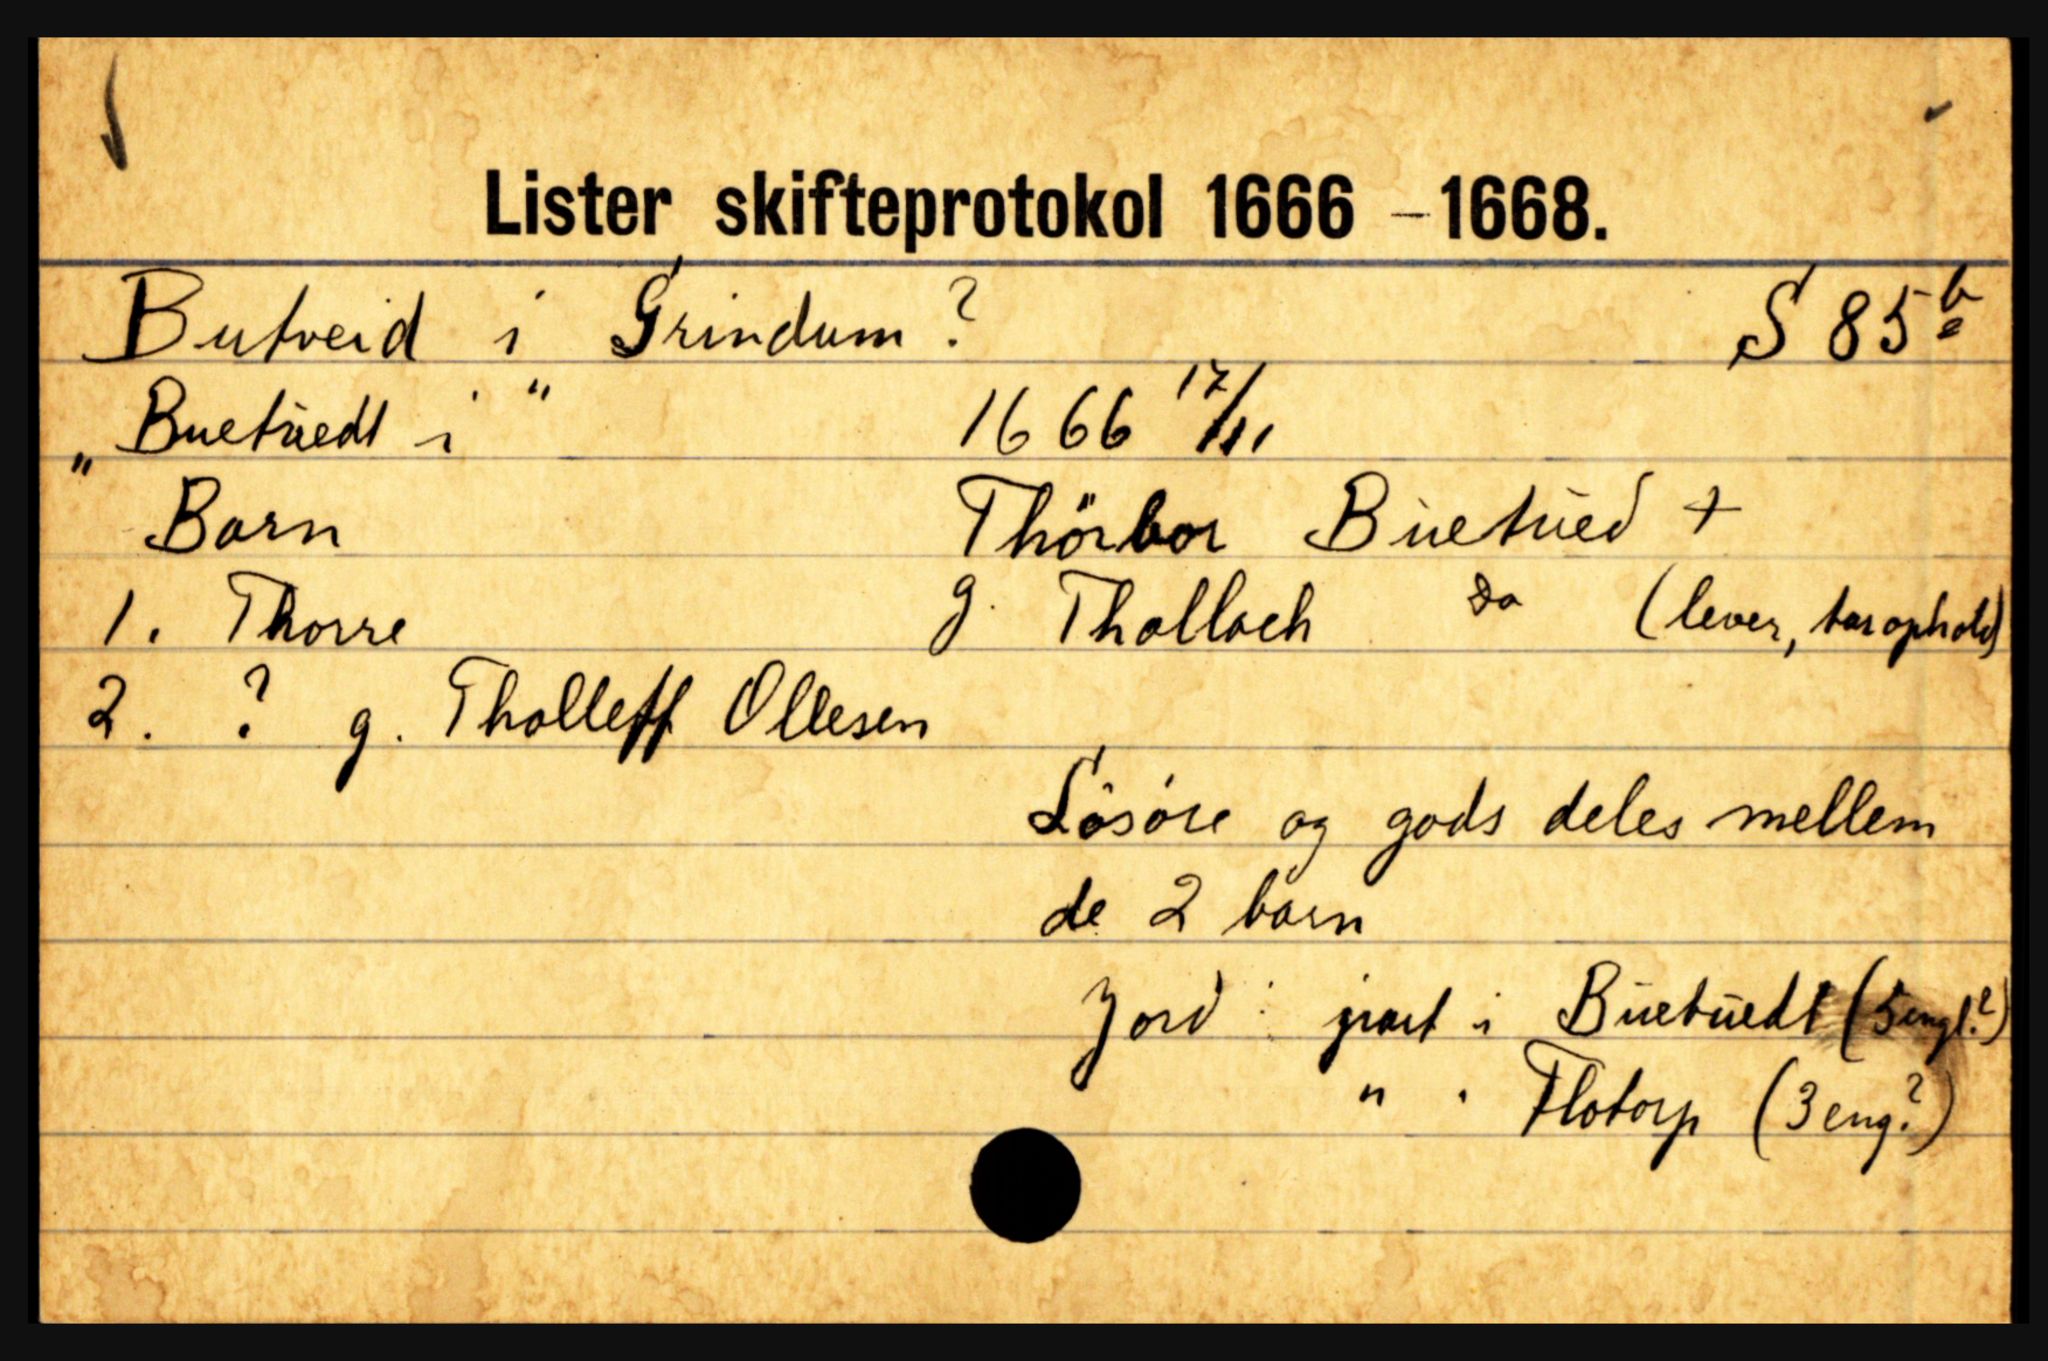 Lister skifteprotokol 1666 - 1668.
Butveid i Grindum ? S 85 b
„ Buetüedt i " 1666 17/11
Barn Thörbor Büetüed +
1. Thorre g. Thollach do (lever, tar ophold)
2. ? g. Tholleff Ollesen
Lösöre og gods deles mellem
de 2 barn
Jord : part i Büetüedt (5 engl.?)
" . Flotorp (3 eng?)